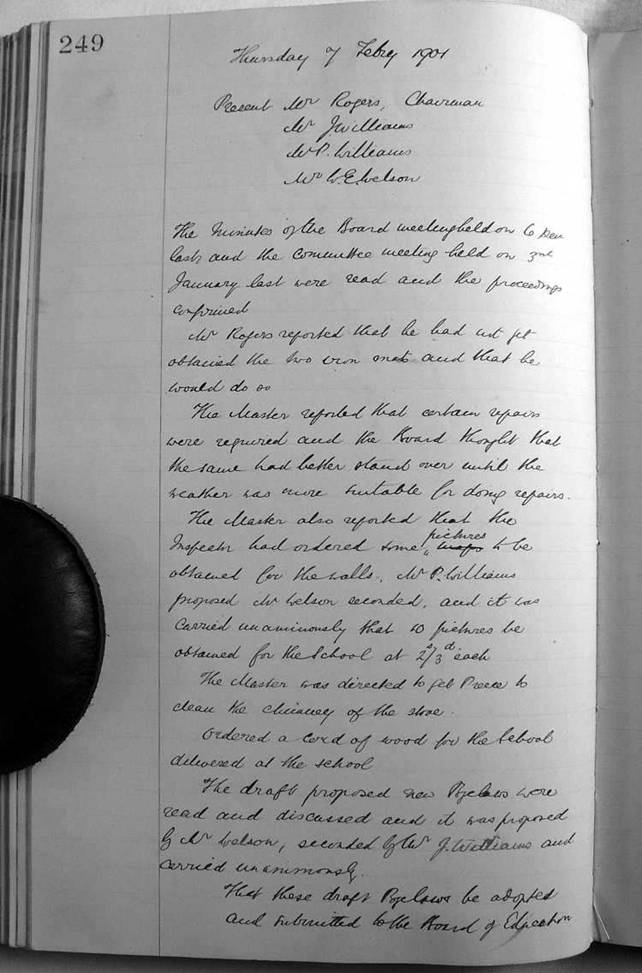 249
Thursday 7 Febry 1901
Present Mr Rogers, Chairman
Mr J Williams
Mr P. Williams
Mr W. E. Welson
The Minutes of the Board meeting held on 6 Dec
last and the Committee meeting held on 3rd
January last were read and the proceedings
confirmed
Mr Rogers reported that he had not yet
obtained the two iron mats and that he
would do so
The Master reported that certain repairs
were required and the Board thought that
the same had better stand over until the
weather was more suitable for doing repairs.
The Master also reported that the
Inspector had ordered some pictures maps to be
obtained for the walls, Mr P. Williams
proposed Mr Welson seconded, and it was
carried unanimously that 10 pictures be
obtained for the School at 2s/3d each
The Master was directed to get Preece to
clean the chimney of the stove.
Ordered a cord of wood for the School
delivered at the school
The draft proposed new Byelaws were
read and discussed and it was proposed
by Mr Welson, seconded by Mr J. Williams and
carried unanimously.
That these draft Byelaws be adopted
and submitted to the Board of Education